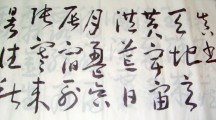 天地玄
黄宇宙
洪荒日
月盈昃
辰宿列
張寒来
暑往秋